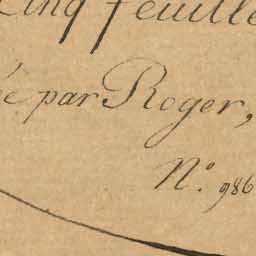 Cinq feuille
é par Roger,
N.º 986